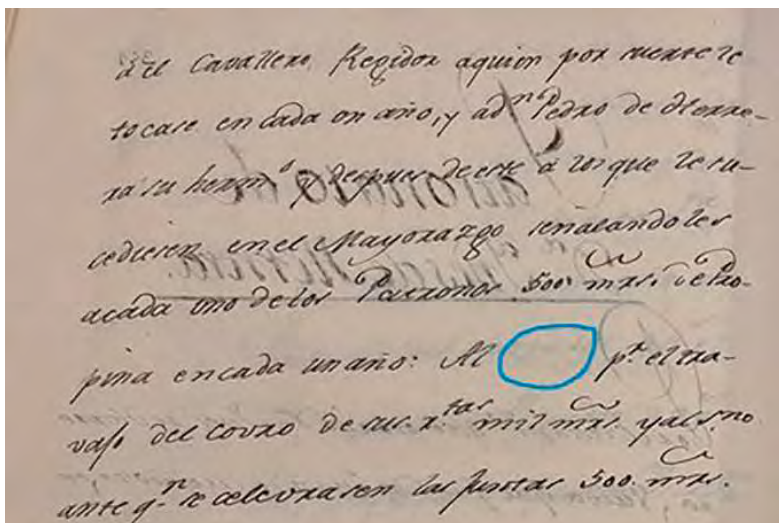 a el Cavallero Regidor aquien por suerte le
tocase en cada un año, y a dn Pedro de Herre-
ra su hermo y despues de este à los que le su-
cediesen en el Mayorazgo señalandoles
acada uno de los Patronos 500 mrs. de Pro-
pina encada un año: Al pr. el tra-
vajo del covro de sus rtas mil mrs. y al sno
ante qn se celevrasen las Juntas 500. mrs.